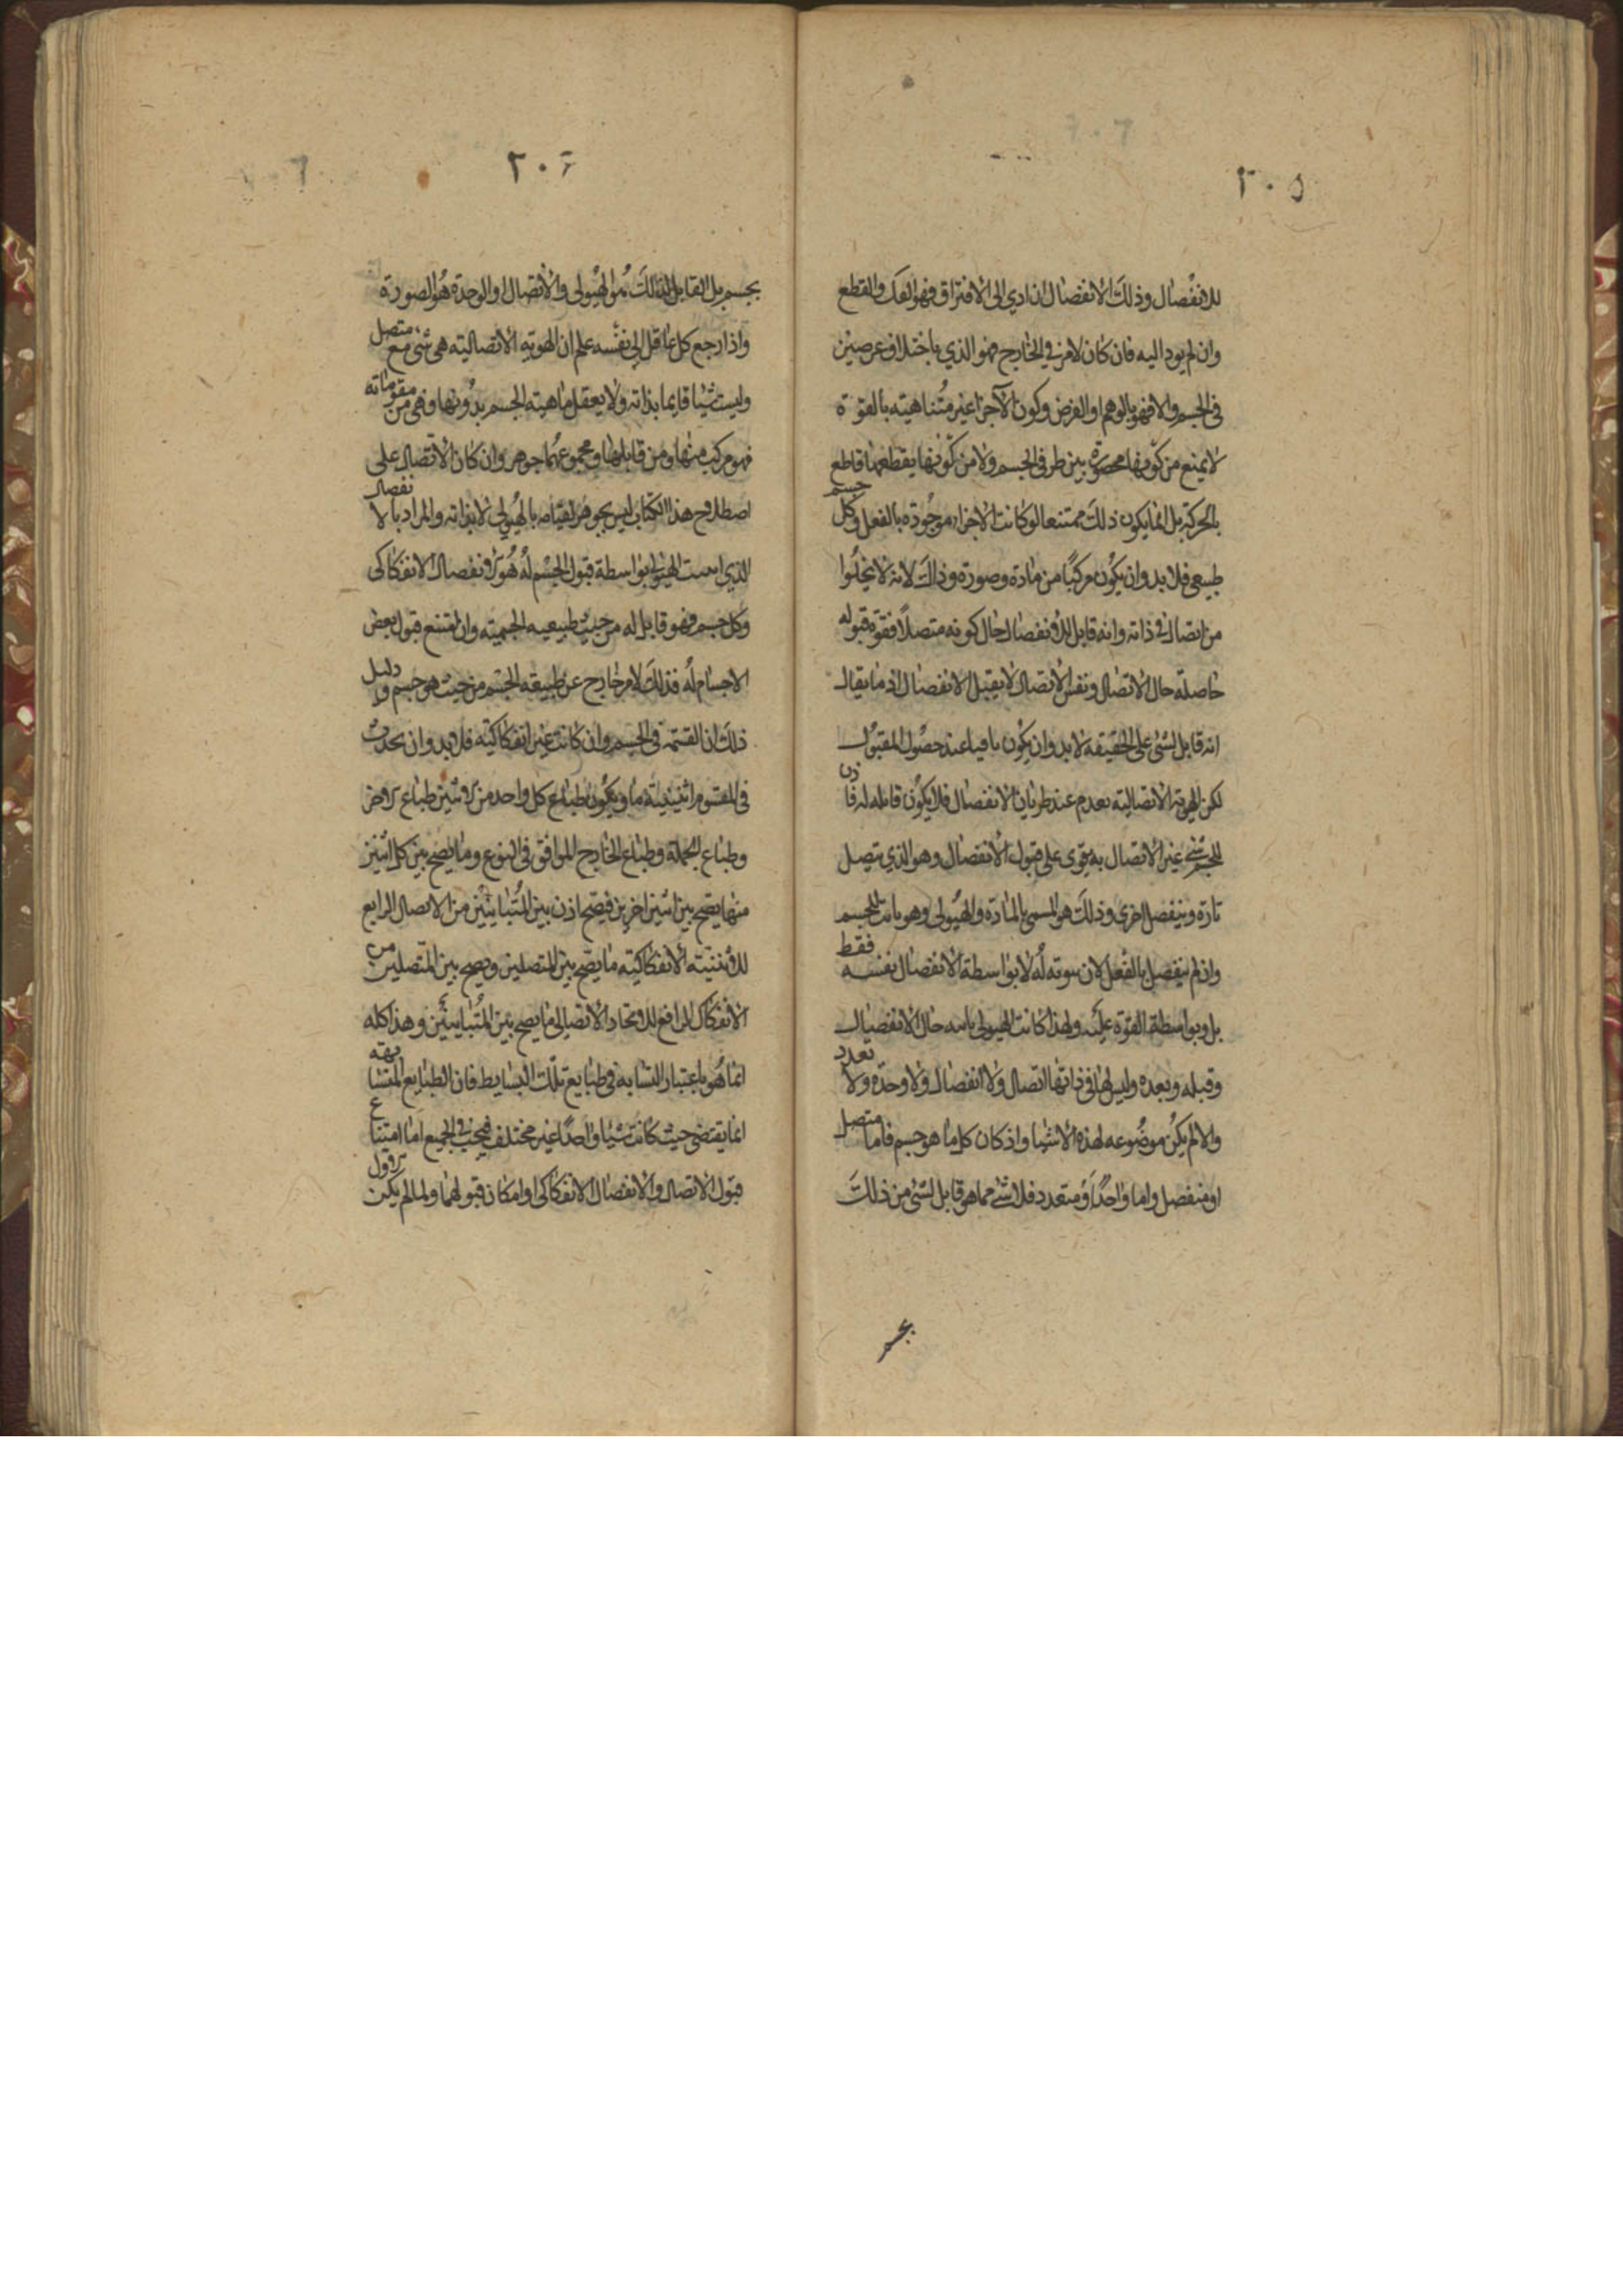 ٢٠٥
للانفصال وذلك الانفصال ان ادي الى الافتراق فهو الفك والقطع
وان لم يود اليه فان كان لامر في الخارج فهو الذي باختلاف عرضين
في الجسم والا فهو بالوهم او الفرض وكون الاجزا غير متناهيته بالقوة
لا يمنع من كونها محصورة بين طرفي الجسم ولا من كونها يقطعها قاطع
بالحركة بل انما يكون ذلك ممتنعا لو كانت الاجزاء موجودة بالفعل وكل جسم
طبيعي فلا بد وان يكون مركبا من مادة وصورة وذلك لانه لا يخلوا
من اتصال في ذاته وانه قابل للانفصال حال كونه متصلا فقوة قبوله
حاصلة حال الاتصال ونفس الاتصال لا يقبل الانفصال اذ ما يقال
انه قابل لشئ على الحقيقة لا بد وان يكون باقيا عند حصول المقبول
لكن الهوية الاتصالية يعدم عند طريان الانفصال فلا يكون قابله له فاذن
للجسم شئ غير الاتصال به يقوى على قبول الانفصال وهو الذي يتصل
تارة وينفصل اخرى وذلك هو المسمى بالمادة والهيولى وهو ثابت للجسم
وان لم ينفصل بالفعل لان ثبوته له لا بواسطة الانفصال نفسه فقط
بل وبواسطة القوة عليه ولهذا كانت الهيولى ثابته حال الانفصال
وقبله وبعده وليس لها في ذاتها اتصال ولا انفصال ولا وحدة ولا تعدد
والا لم يكن موضوعه لهذه الاشيا واذ كان كل ما هو جسم فاما متصل
او منفصل واما واحدا او متعدد فلا شئ مما هو قابل لشئ من ذلك
بجسم
٢٠٦
بجسم بل القابل لذلك هو الهيولى والاتصال او الوحدة هو الصورة
واذا رجع كل عاقل الى نفسه علم ان الهوية الاتصاليته هي شئ مع متصل
وليست شيا قايما بذاته ولا يعقل ماهية الجسم بدونها وهي من مقوماته
فهو مركب منها ومن قابلها ومجموعهما جوهر وان كان الاتصال على
اصطلاح هذا الكتاب ليس بجوهر لقيامه بالهيولى لا بذاته والمراد بالانفصال
الذي اثبتت الهيولى بواسطة قبول الجسم له هو الانفصال الانفكاكى
وكل جسم فهو قابل له من حيث طبيعيه الجسميته وان امتنع قبول بعض
الاجسام له فذلك لامر خارج عن طبيعة الجسم من حيث هو جسم ودليل
ذلك ان القسمة في الجسم وان كانت غير انفكاكيته فلا بد وان يحدث
في المقسوم اثنينيته ما ويكون طباع كل واحد من الاثنين طباع الاخر
وطباع الجملة وطباع الخارج الموافق في النوع وما يصح بين كل اثنين
منها يصح بين اثنين اخرين فيصح اذن بين المتباينين من الاتصال الرافع
للاثنينية الانفكاكيته ما يصح بين المتصلين ويصح بين المتصلين من
الانفكاك الرافع للاتحاد الاتصالي ما يصح بين المتباينين وهذا كله
انما هو باعتبار التشابه في طبايع تلك البسايط فان الطبايع المتشابهة
انما يقتضى حيث كانت شيا واحدا غير مختلف فيجب في الجميع اما امتناع
قبول الاتصال والانفصال الانفكاكى او امكان قبولهما ولما لم يكن الاول